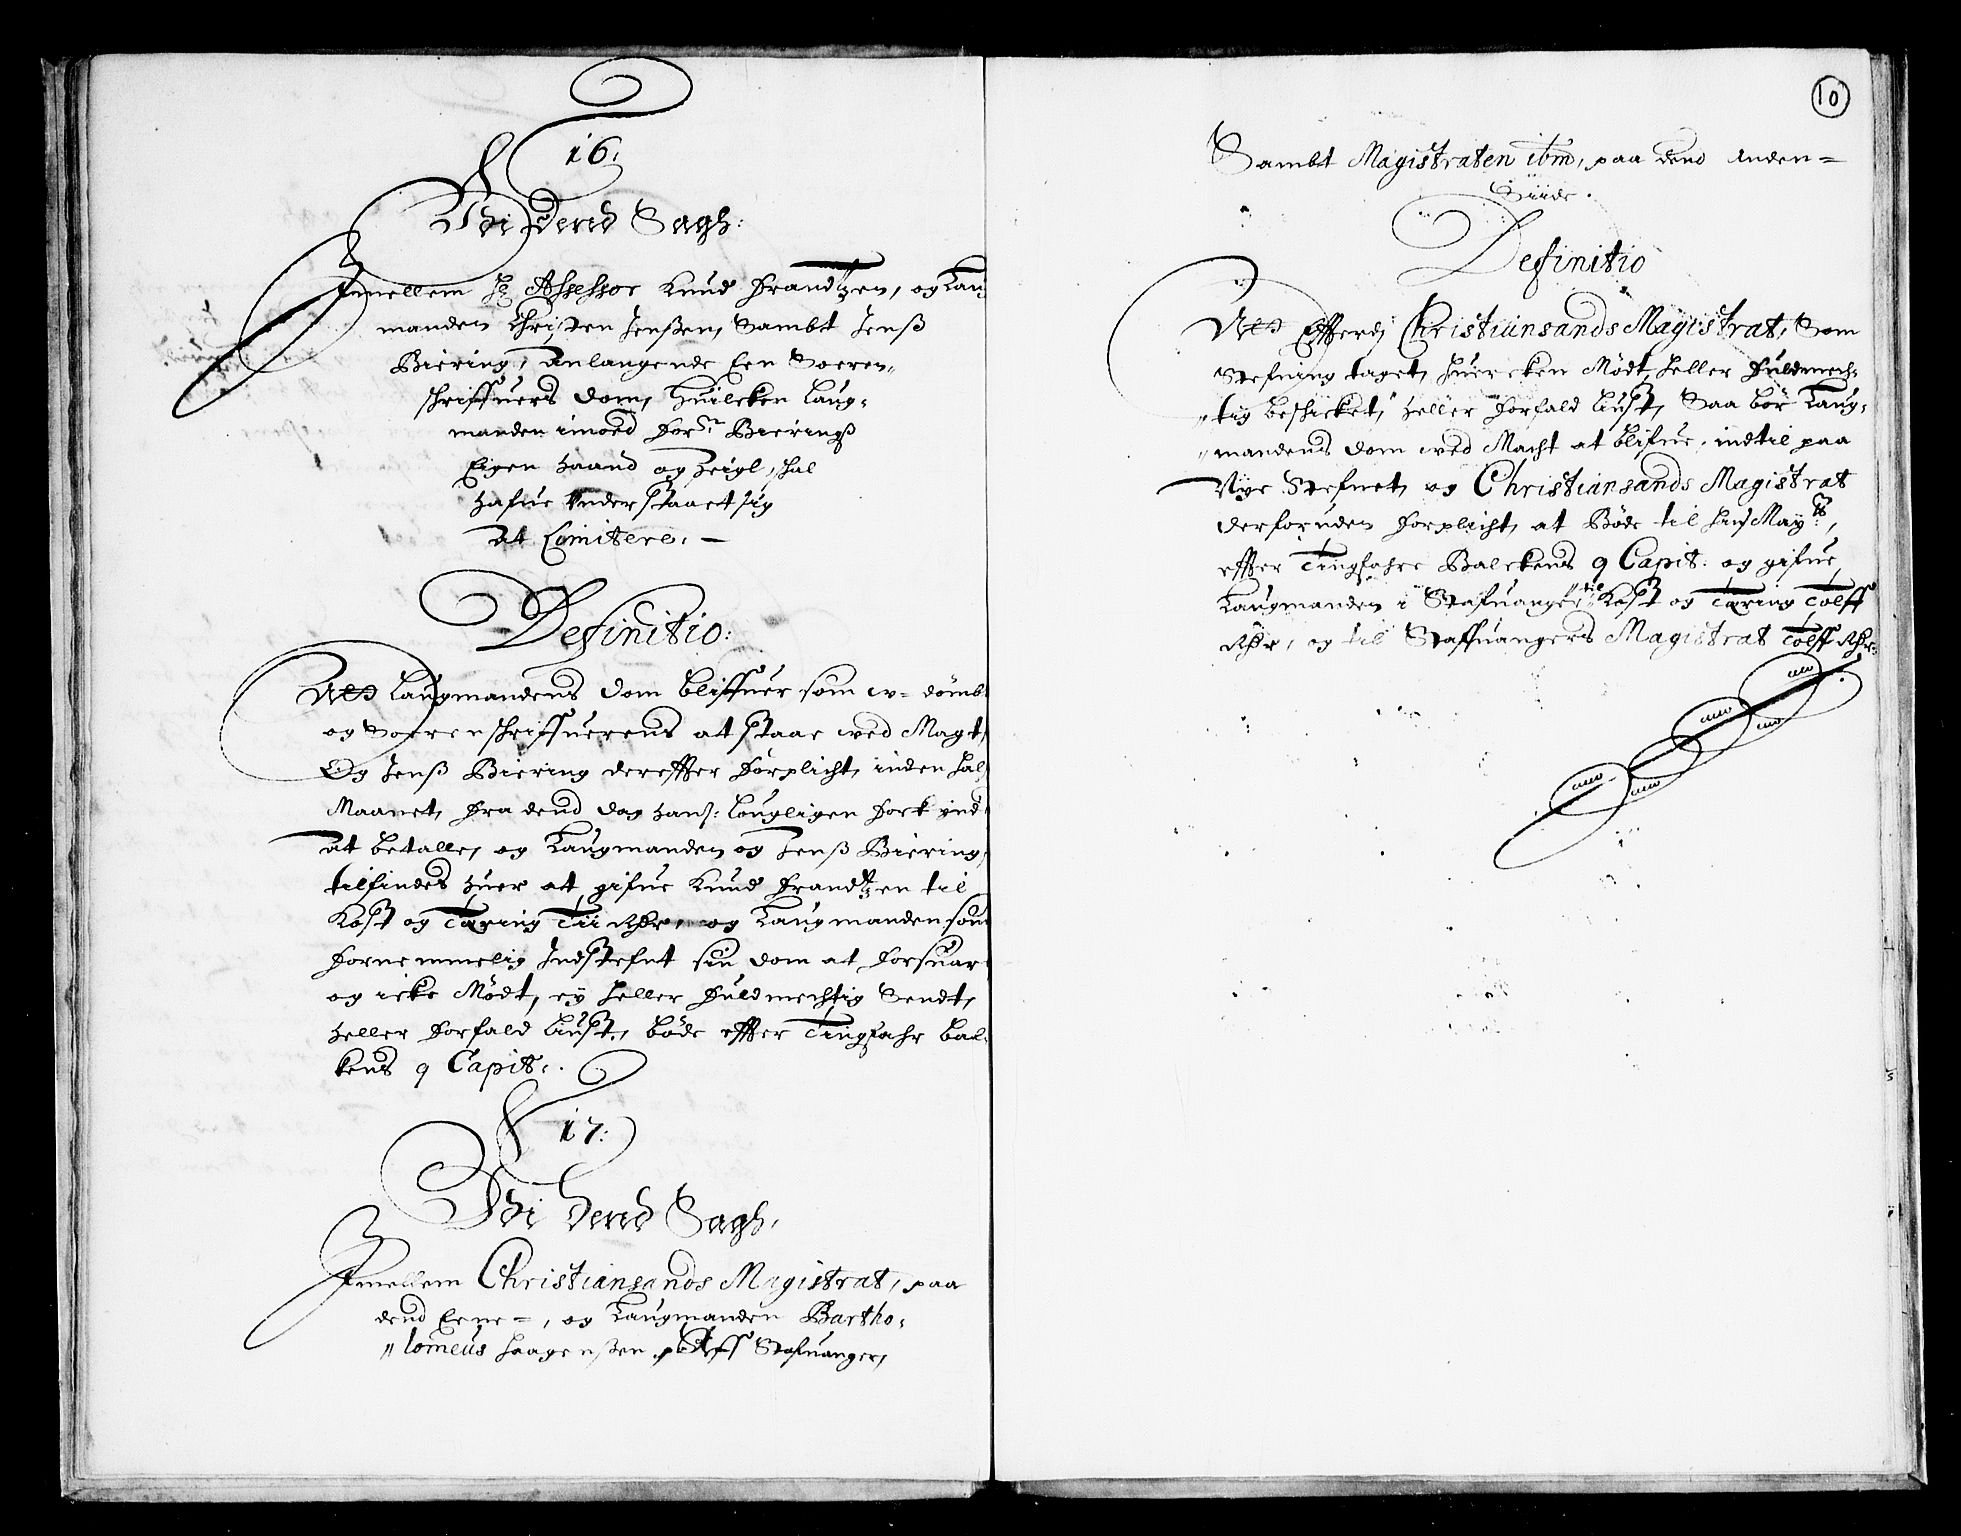 16.
Udi Dend Sagh:
Imellem Hr Assessor Knud Frandtzen, og Lau
manden Christen Jenßen, Sambt Jenß
Biering, Anlangende Een Soeren-
schriffuers dom, Huilcken Laug-
manden imod for.ne Bierings
Eigen Haand og Zeigl, skal
hafue Understaaet sig
At Comitere. —
Definitio:
Ved Laugmandens dom bliffuer som u-dömbt
og Sorenschriffuerens at staae ved Magt,
Og Jenß Biering derefter forplicht, inden hal
Maanet, fra dend dag hans lougligen forkynd
at betalle, og Laugmanden og Jenß Biering,
tilfindes huer at gifue Knud Frandtzen til
Kost og Tæring Tii Rdr, og Laugmanden som
fornemmelig Indstefnt sin dom at forsuar
og icke Mödt, ey heller fuldmechtig Sendt,
heller forfald liust, böde effter Tingfahr bal-
kens 9 Capit:.
17:
Udi Dend Sagh,
Imellem Christiansands Magistrat, paa
dend Eene-, og Laugmanden Bartho-
"lomeus Haagensen aff Stafuanger,
10
Sambt Magistraten ibm, paa dend Anden-
Siide.
Definitio
Ved Efferdj Christiansands Magistrat, Som
Stefning taget, huercken Mödt, heller fuldmech-
"tig beschicket, heller forfald liust, Saa bör Laug-
"mandens dom ved Macht at blifue, indtil paa
Nye Stefnet, og Christiansands Magistrat
derforuden forplicht, at Böde til hans May:ts,
effter Tingfahre Balckens 9 Capit: og gifue
Laugmanden i Stafuanger til Kost og Tæring Tolff
Rdr, og til Staffuangers Magistrat Tolff Rdr: